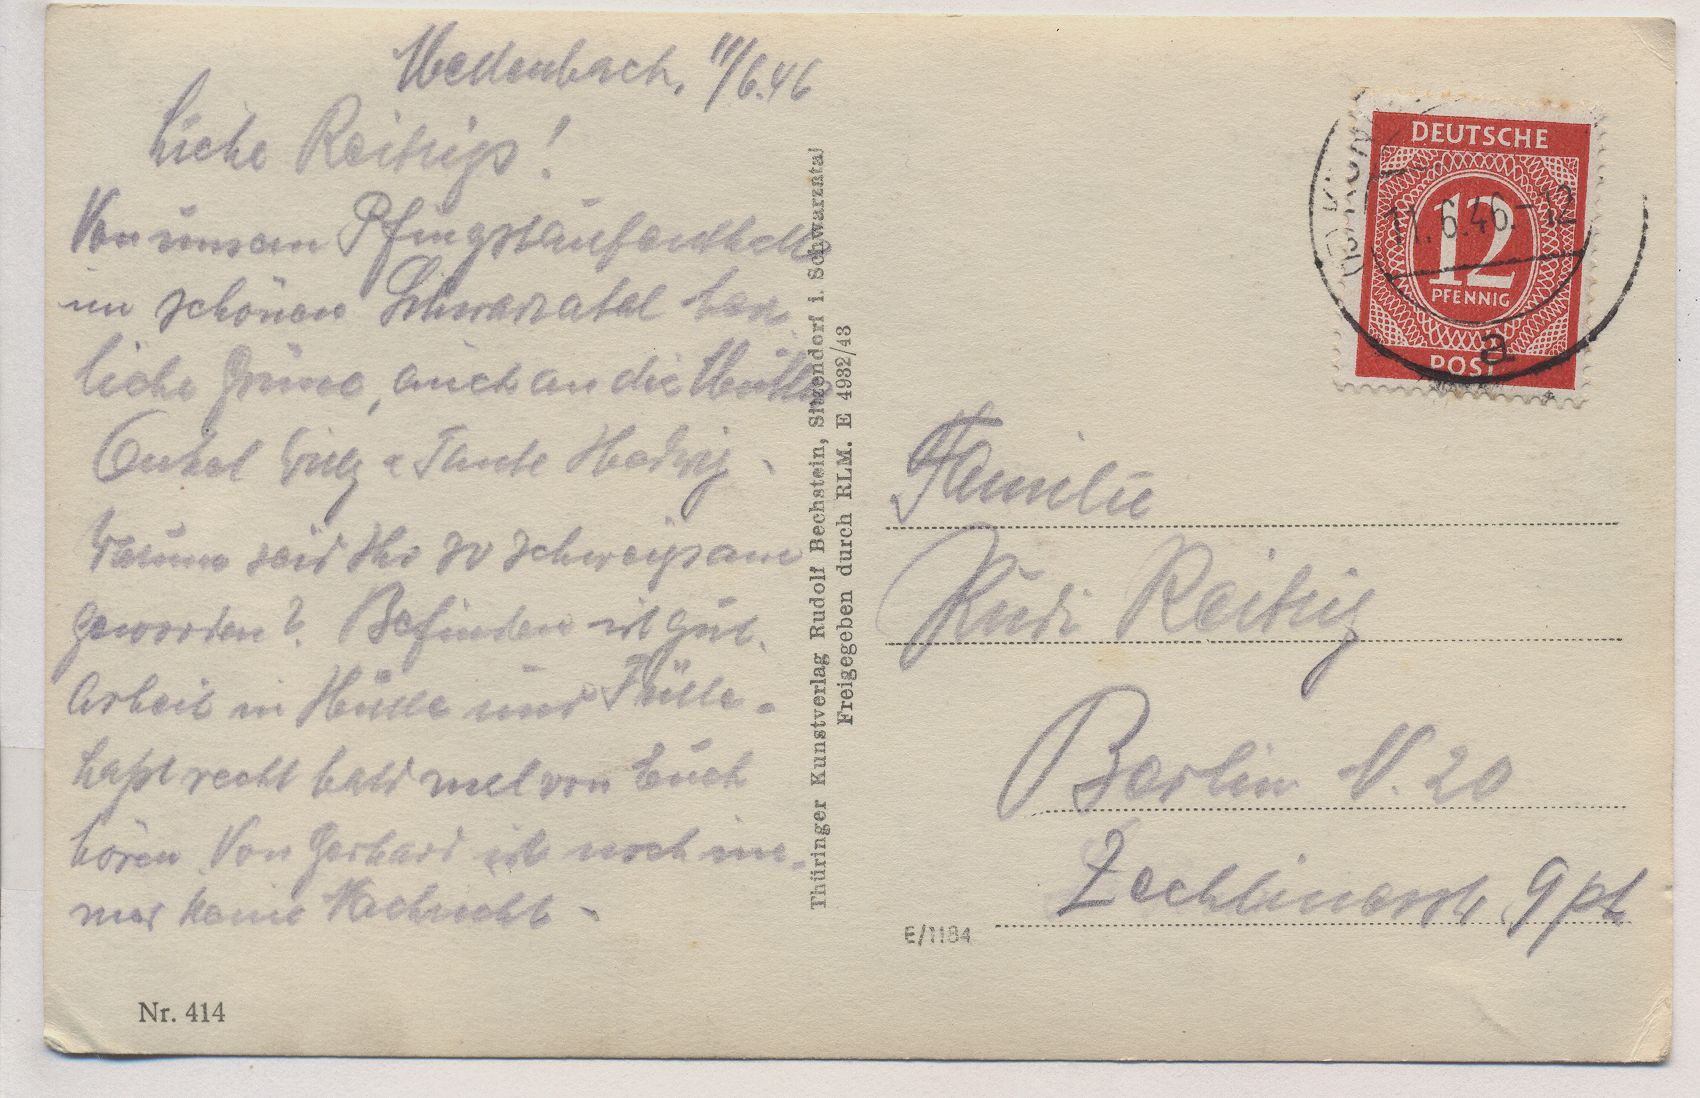 Mellenbach, 11/6.46
Liebe Reitzigs!
Von unserm Pfingstaufenthalt
im schönen Schwarzatal herz-
liche Grüße, auch an die Mutter
Onkel Willy u Tante Hedwig.
Warum seid Ihr so schweigsam
geworden? Befinden ist gut.
Arbeit in Hülle und Fülle.
Laßt recht bald mal von Euch
hören Von Gerhard ist noch im-
mer keine Nachricht.
Nr. 414
Thüringer Kunstverlag Rudolf Bechstein, Sitzendorf i. Schwarzatal
Freigegeben durch RLM. E 4932/43
DEUTSCHE
12
PFENNIG
POST
11.6.46.-12
a
Familie
Rudi Reitzig
Berlin N. 20
Zechlinerstr. 9 pt
E/1184